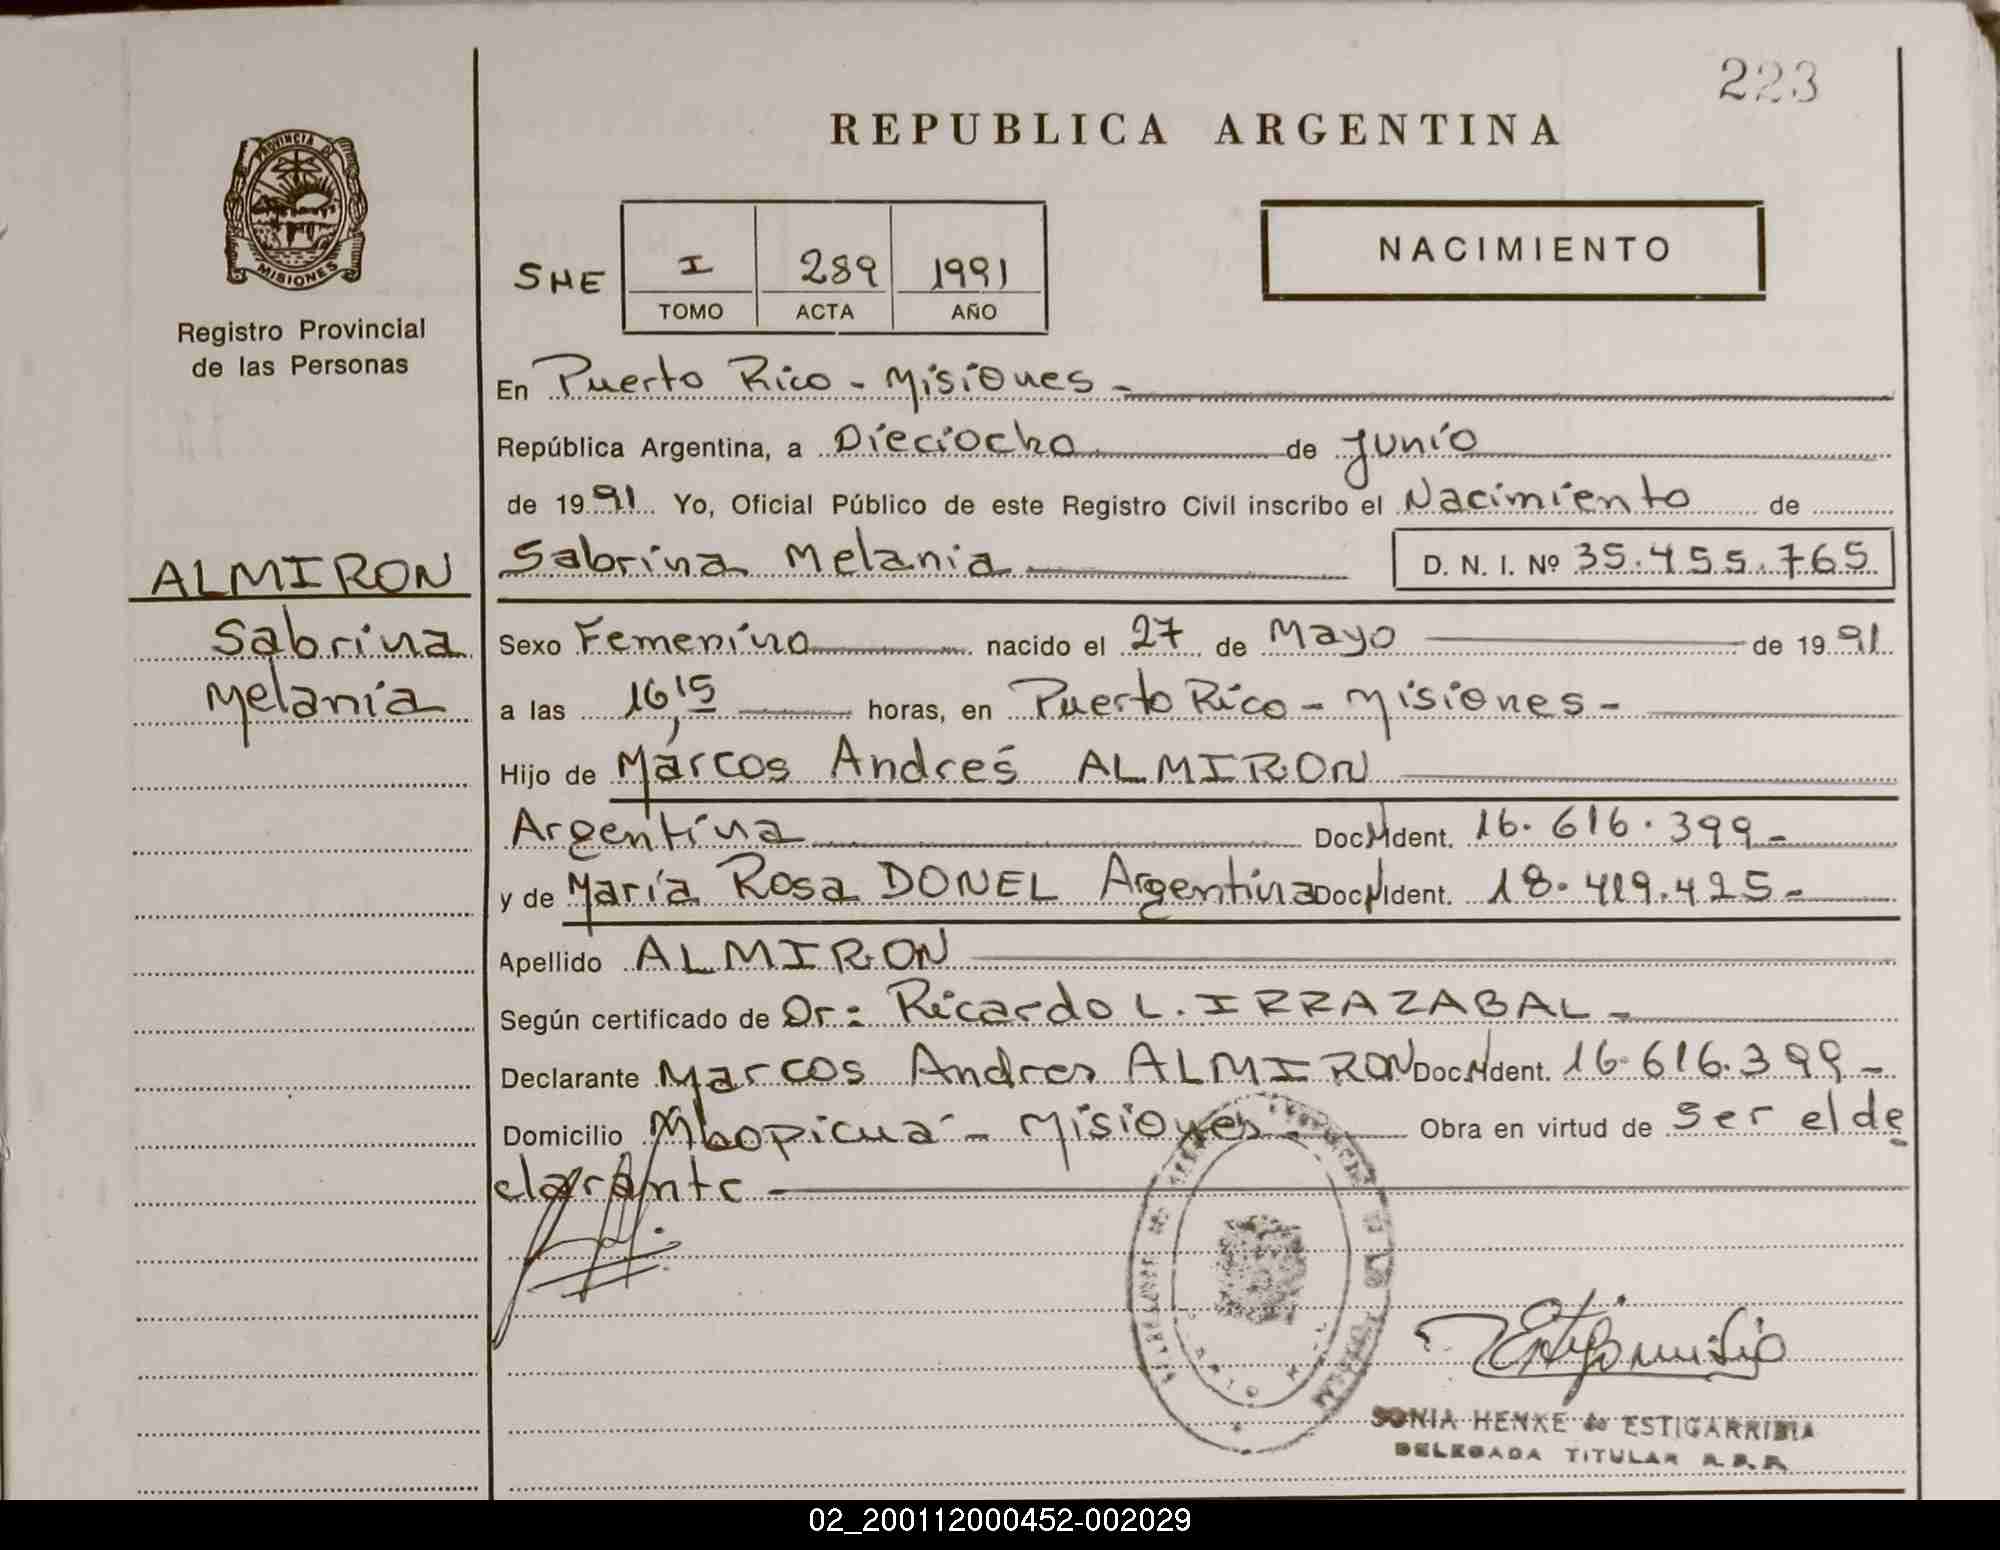 223
REPUBLICA ARGENTINA
PROVINCIA DE
MISIONES
Registro Provincial
de las Personas
SHE
I 289 1991
TOMO ACTA AÑO
NACIMIENTO
En Puerto Rico - Misiones -
República Argentina, a Dieciocho de Junio
de 1991 Yo, Oficial Público de este Registro Civil inscribo el Nacimiento de
ALMIRON
Sabrina Melania D. N. I. Nº 35.455.765
Sabrina
Melania
Sexo Femenino nacido el 27 de Mayo de 1991
a las 16,15 horas, en Puerto Rico - Misiones -
Hijo de Marcos Andrés ALMIRON
Argentina Doc. Ident. 16.616.399 -
y de María Rosa DONEL Argentina Doc. Ident. 18.419.425 -
Apellido ALMIRON
Según certificado de Dr: Ricardo L. IRRAZABAL -
Declarante Marcos Andres ALMIRON Doc. Ident. 16.616.399 -
Domicilio Mbopicuá - Misiones - Obra en virtud de ser el de
clarante -
SONIA HENKE de ESTIGARRIBIA
DELEGADA TITULAR R.P.P.
02_200112000452-002029